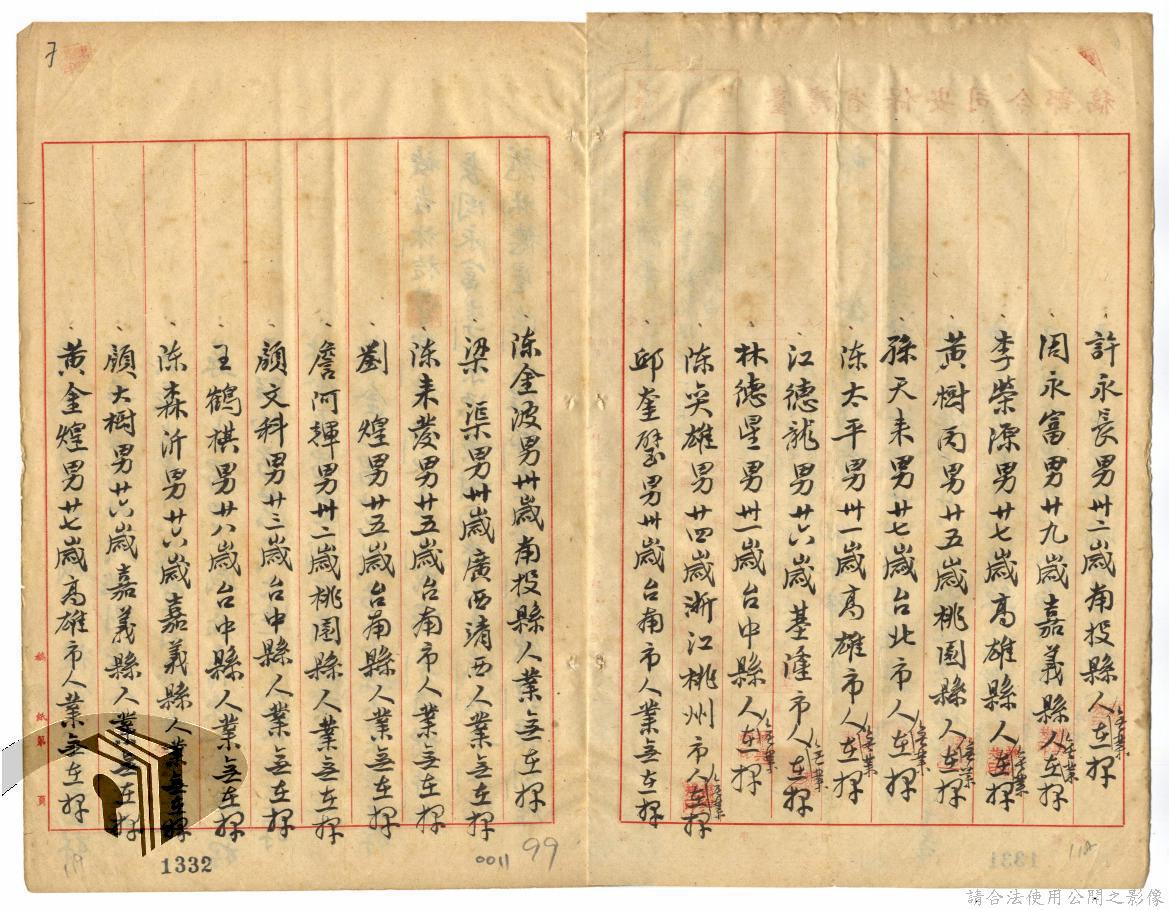 許永長男卅二歲南投縣人業無在押
周永富男廿九歲嘉義縣人業無在押
李榮源男廿七歲高雄縣人業無在押
黃樹丙男廿五歲桃園縣人業無在押
孫天來男廿七歲台北市人業無在押
陳太平男卅一歲高雄市人業無在押
江德龍男廿六歲基隆市人業無在押
林德星男卅一歲台中縣人業無在押
陳英雄男廿四歲浙江桃州市人業無在押
邱奎璧男卅歲台南市人業無在押
陳金波男卅歲南投縣人業無在押
梁渠男卅歲廣西靖西人業無在押
陳來發男廿五歲台南市人業無在押
劉煌男廿五歲台南縣人業無在押
詹阿輝男卅二歲桃園縣人業無在押
顏文科男廿三歲台中縣人業無在押
王鶴棋男廿八歲台中縣人業無在押
陳森沂男廿六歲嘉義縣人業無在押
顏大樹男廿六歲嘉義縣人業無在押
黃金煌男廿七歲高雄市人業無在押
稿紙第 頁
118
99
0011
1332
119
請合法使用公開之影像